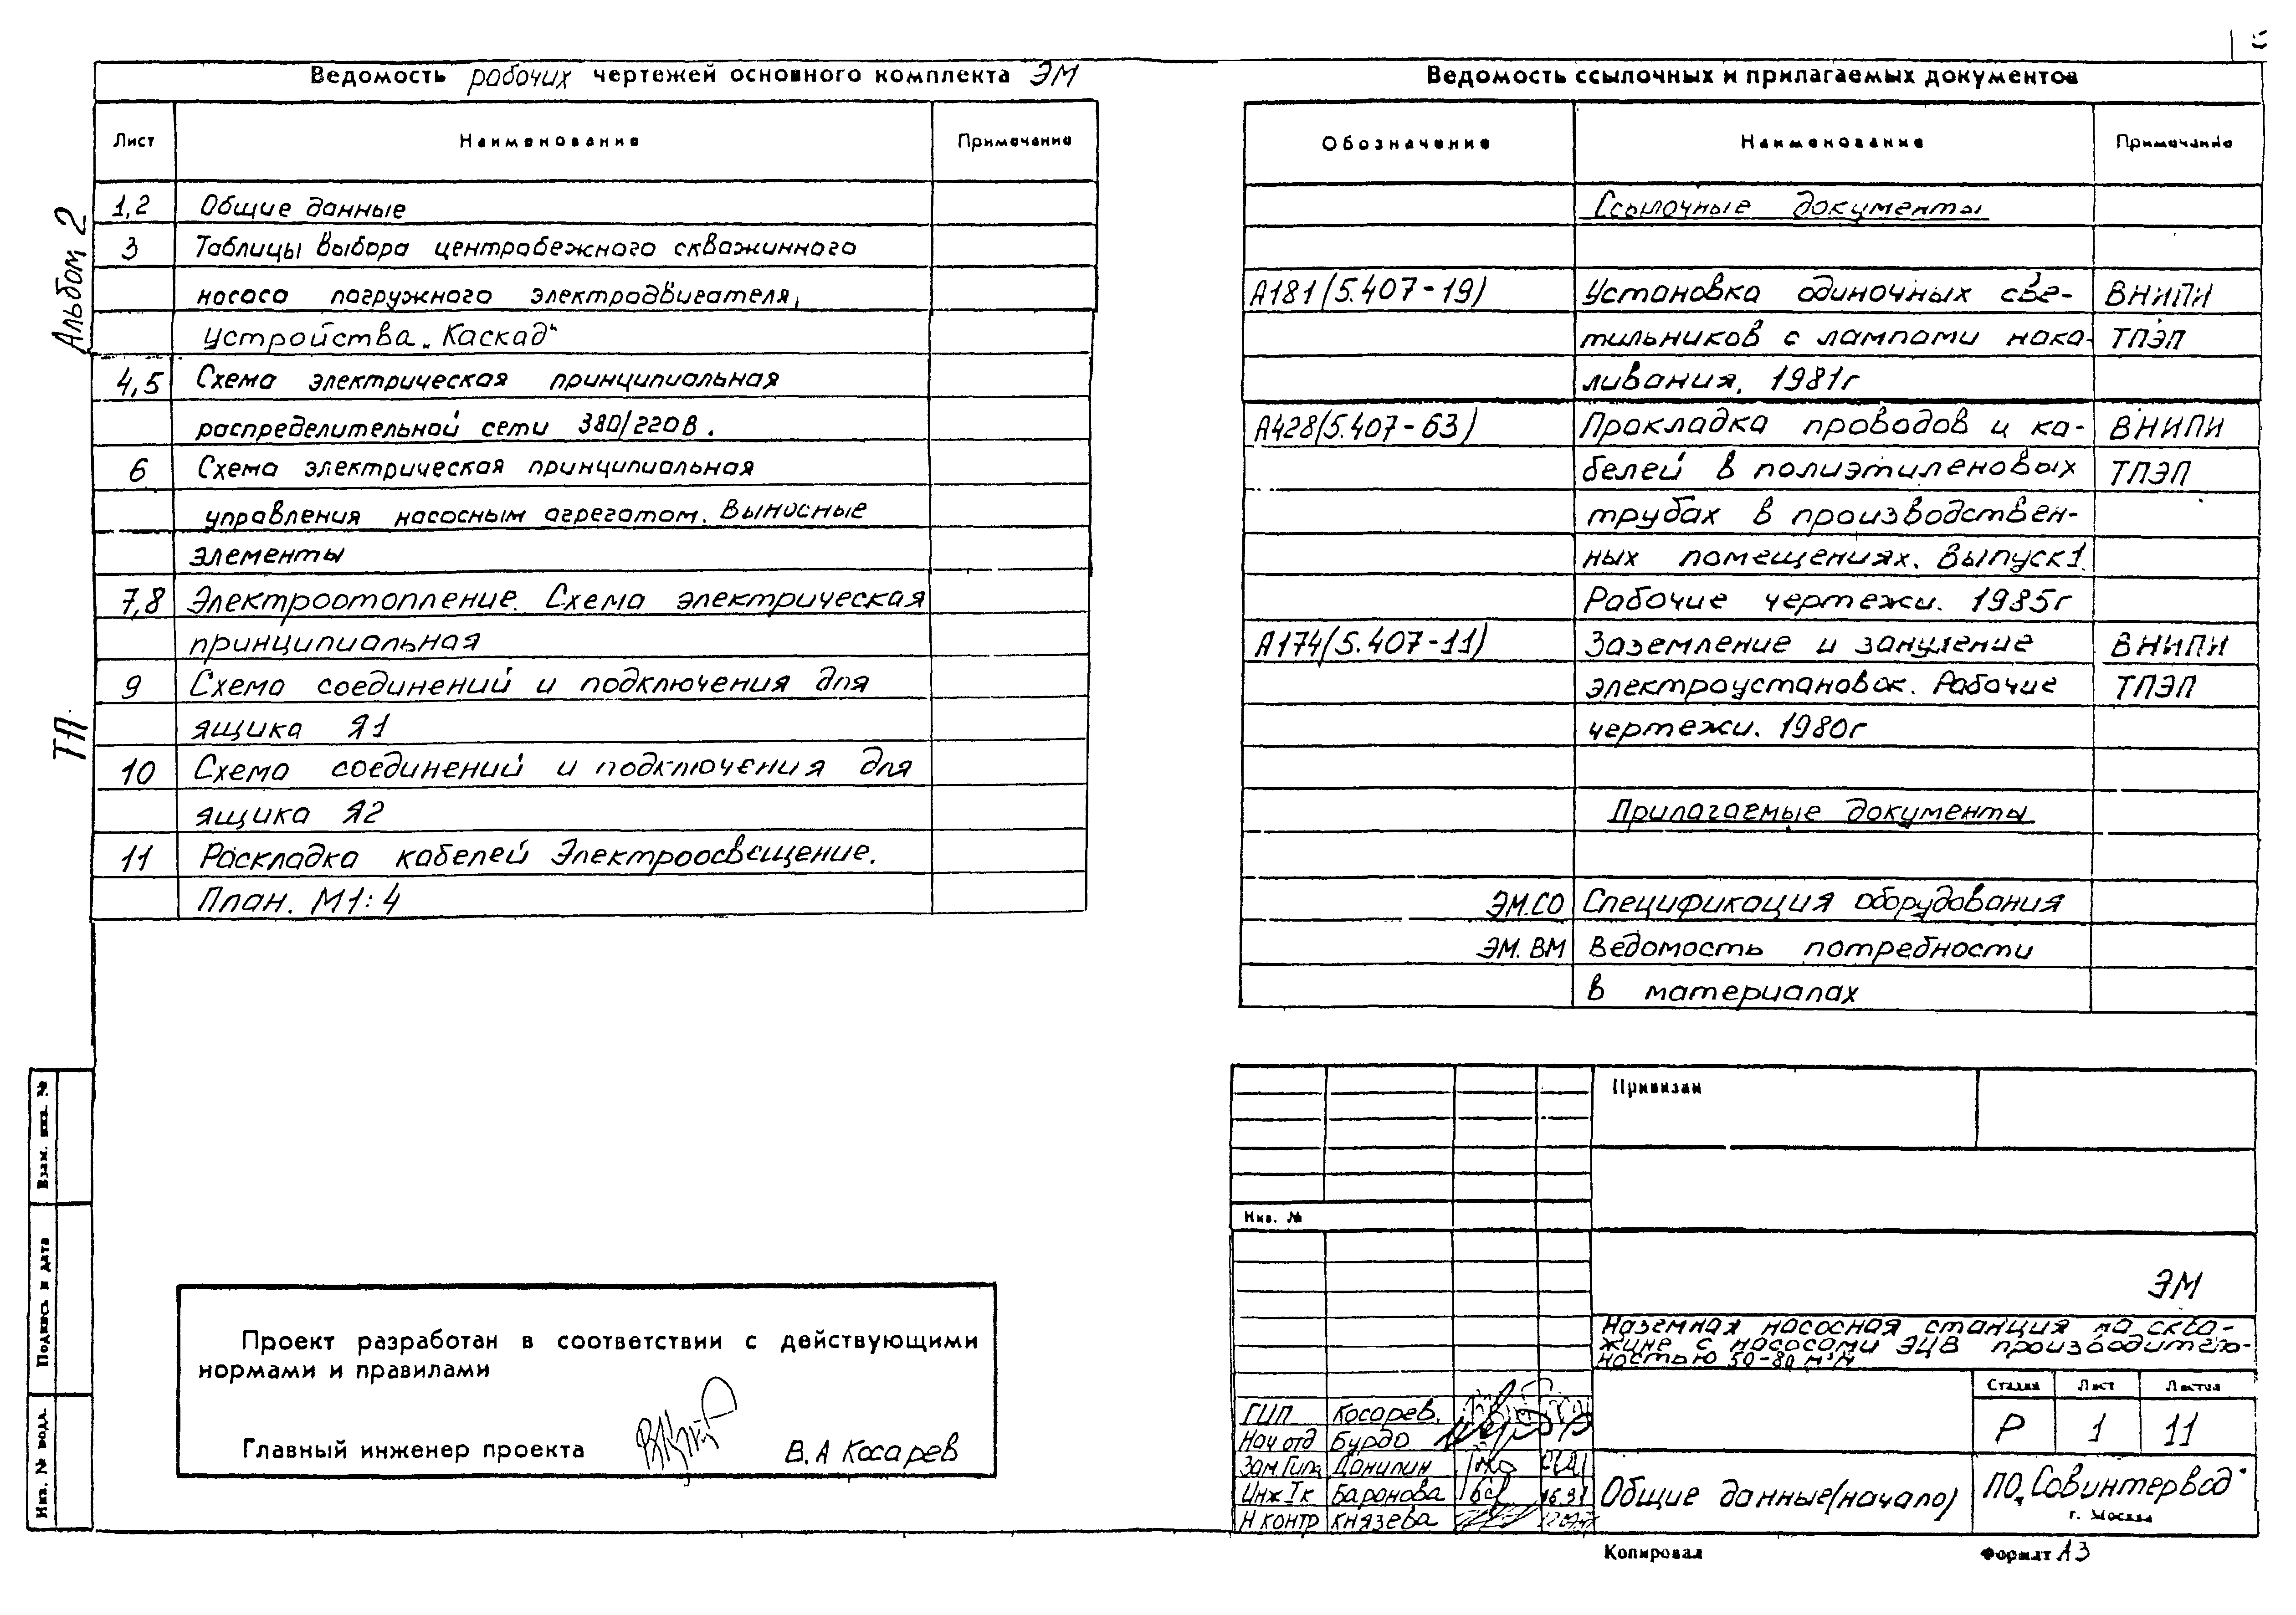 Ведомость рабочих чертежей основного комплекта ЭМ
Лист Наименование Примечание
1,2 Общие данные
3 Таблицы выбора центробежного скважинного
насоса погружного электродвигателя,
устройства „Каскад“
4,5 Схема электрическая принципиальная
распределительной сети 380/220В.
6 Схема электрическая принципиальная
управления насосным агрегатом. Выносные
элементы
7,8 Электроотопление. Схема электрическая
принципиальная
9 Схема соединений и подключения для
ящика Я1
10 Схема соединений и подключения для
ящика Я2
11 Раскладка кабелей Электроосвещение.
План. М1:4
Альбом 2
ТП.
Ведомость ссылочных и прилагаемых документов
Обозначение Наименование Примечание
Ссылочные документы
А181(5.407-19) Установка одиночных све- ВНИПИ
тильников с лампами нака- ТПЭП
ливания, 1981г
А428(5.407-63) Прокладка проводов и ка- ВНИПИ
белей в полиэтиленовых ТПЭП
трубах в производствен-
ных помещениях. Выпуск 1.
Рабочие чертежи. 1985г
А174(5.407-11) Заземление и зануление ВНИПИ
электроустановок. Рабочие ТПЭП
чертежи. 1980г
Прилагаемые документы
ЭМ.СО Спецификация оборудования
ЭМ.ВМ Ведомость потребности
в материалах
Взам. инв. №
Подпись и дата
Инв. № подл.
Проект разработан в соответствии с действующими
нормами и правилами
Главный инженер проекта В.А Косарев
Привязан
Инв. №
ЭМ
Наземная насосная станция на сква-
жине с насосами ЭЦВ производитель-
ностью 50-80 м³/ч
Стадия Лист Листов
Р 1 11
ГИП Косарев.
Нач отд Бурдо
Зам Гип Данилин
Инж Iк Баронова
Н контр Князева
Общие данные(начало)
ПО „Совинтервод“
г. Москва
Копировал Формат А3